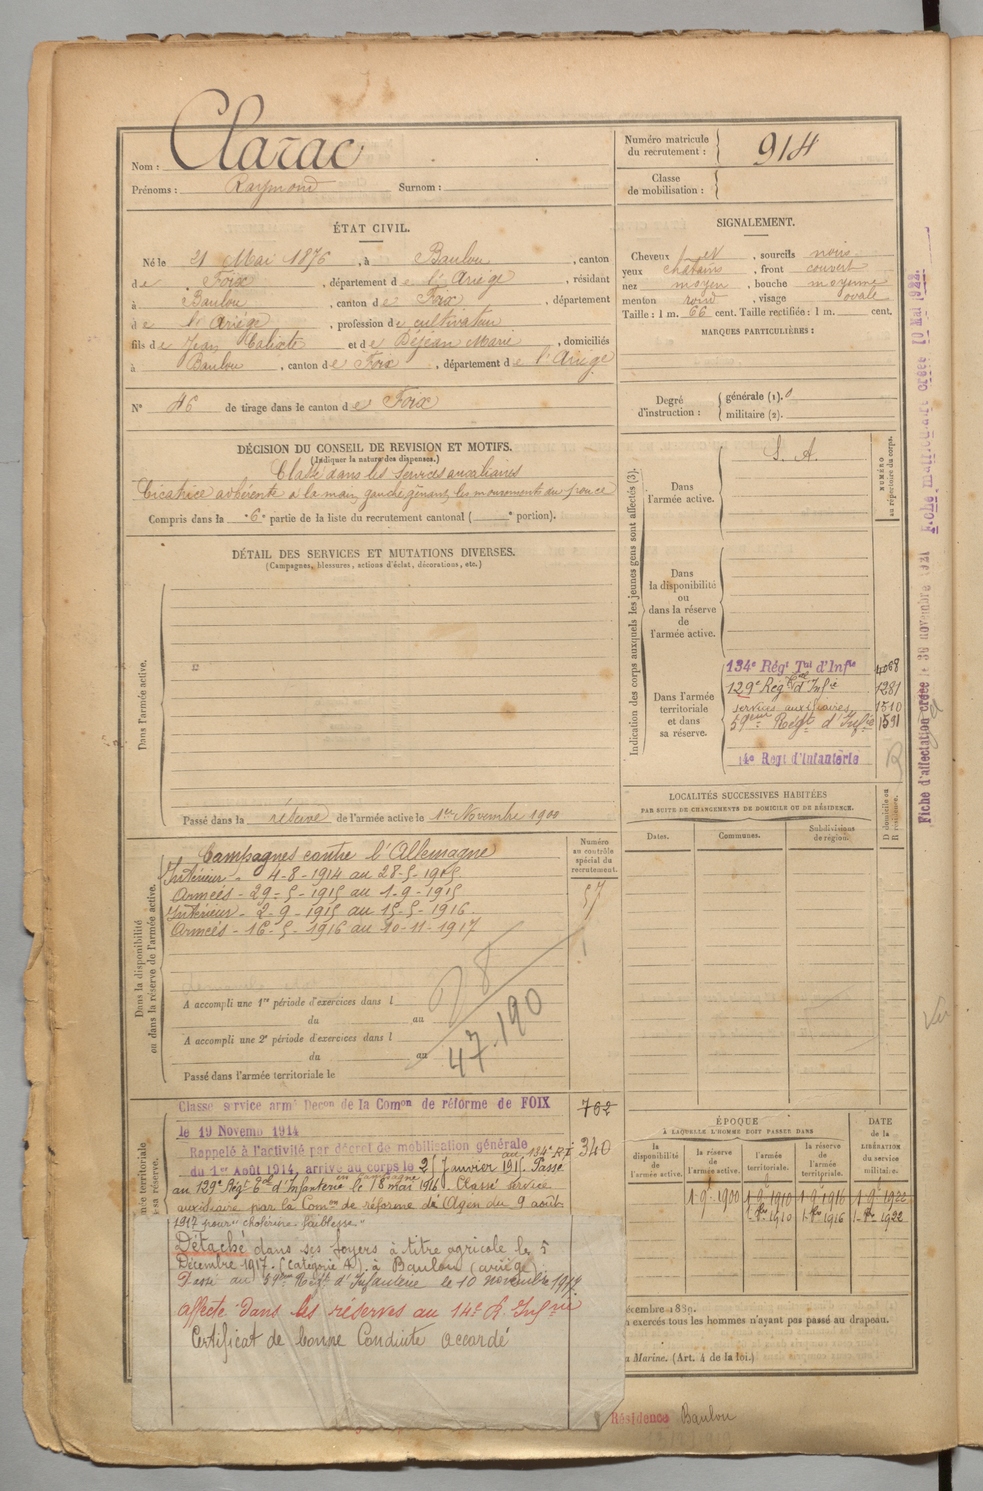 Nom : Clarac
Prénoms : Raymond Surnom :
Numéro matricule du recrutement : 914
Classe de mobilisation :
ÉTAT CIVIL.
Né le 21 Mai 1876, à Baulou, canton
de Foix, département de l'Ariège, résidant
à Baulou, canton de Foix, département
de l'Ariège, profession de cultivateur
fils de Jean Calixte et de Déjean Marie, domiciliés
à Baulou, canton de Foix, département de l'Ariège
N° 46 de tirage dans le canton de Foix
SIGNALEMENT.
Cheveux et, sourcils noirs
yeux châtains, front couvert
nez moyen, bouche moyenne
menton rond, visage ovale
Taille : 1 m. 66 cent. Taille rectifiée : 1 m. cent.
MARQUES PARTICULIÈRES :
Degré d'instruction : générale (1). 0
militaire (2).
DÉCISION DU CONSEIL DE REVISION ET MOTIFS.
(Indiquer la nature des dispenses.)
Classé dans les services auxiliaires
Cicatrice adhérente à la main gauche gênant les mouvements du pouce
Compris dans la 6e partie de la liste du recrutement cantonal ( e portion).
DÉTAIL DES SERVICES ET MUTATIONS DIVERSES.
(Campagnes, blessures, actions d'éclat, décorations, etc.)
Dans l'armée active.
Passé dans la réserve de l'armée active le 1er Novembre 1900
Indication des corps auxquels les jeunes gens sont affectés (3).
NUMÉRO au répertoire du corps.
Dans l'armée active.
S. A.
Dans la disponibilité ou dans la réserve de l'armée active.
Dans l'armée territoriale et dans sa réserve.
134e Régt Tal d'Infie 4068
129e Régt Tal d'Infie 1281
services auxiliaires 1510
59ème Régt d'Infie 1591
14e Regt d'Infanterie
R
LOCALITÉS SUCCESSIVES HABITÉES
PAR SUITE DE CHANGEMENTS DE DOMICILE OU DE RÉSIDENCE.
D domicile ou R résidence.
Dates. Communes. Subdivisions de région.
Dans la disponibilité ou dans la réserve de l'armée active.
Numéro au contrôle spécial du recrutement.
Campagnes contre l'Allemagne
Intérieur - 4-8-1914 au 28-5-1915
Armées - 29-5-1915 au 1-9-1915
Intérieur - 2-9-1915 au 15-5-1916
Armées - 16-5-1916 au 10-11-1917
57
A accompli une 1re période d'exercices dans l
du au
A accompli une 2e période d'exercices dans l
du au
Passé dans l'armée territoriale le
47.190
Classé service armé Decon de la Comon de réforme de FOIX
le 19 Novemb 1914
762
Rappelé à l'activité par décret de mobilisation générale
du 1er Août 1914, arrivé au corps le 2 Janvier 191 . au 134e RI Passé
340
au 129e Régt Tal d'Infanterie en campagne le 18 mai 191 . Classé service
auxiliaire par la Comon de réforme de Agen du 9 août
1917 pour "cholérine faiblesse"
Détaché dans ses foyers à titre agricole le 5
Décembre 1917. (catégorie A) à Baulou (ariège).
Passé au 59ème Régt d'Infanterie le 10 novembre 1917.
affecté dans les réserves au 14e R. Infrie
Certificat de bonne Conduite accordé
ÉPOQUE
À LAQUELLE L'HOMME DOIT PASSER DANS
la disponibilité de l'armée active. la réserve de l'armée active. l'armée territoriale. la réserve de l'armée territoriale.
DATE de la LIBÉRATION du service militaire.
1-9-1900 1-9-1910 1-9-1916 1-9-1922
1-8bre-1910 1-8bre 1916 1-8bre 1922
écembre 1889.
n exercés tous les hommes n'ayant pas passé au drapeau.
a Marine. (Art. 4 de la loi.)
Résidence Baulou
Fiche d'affectation créée le 30 novembre 1921 Fiche matriculaire créée 10 Mai 1922.